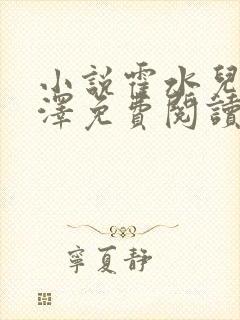 小説霍水兒
澤免費閱讀
寧夏靜